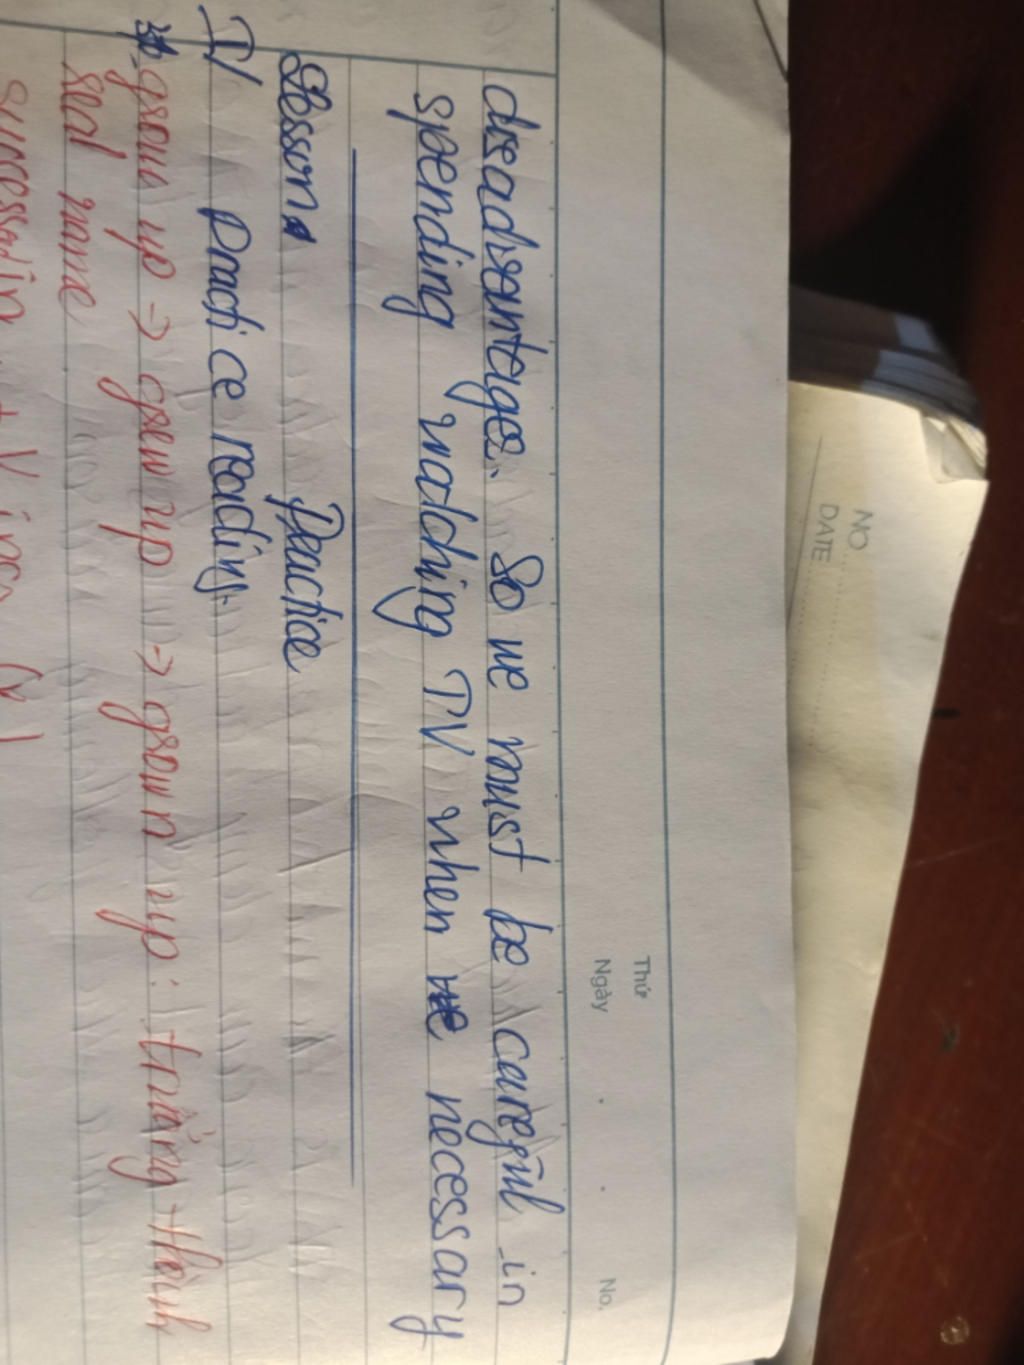 Thứ
Ngày No.
disadvantages. So we must be careful in
spending watching TV when we necessary
Lesson Practice
I/ Practice reading.
grow up → grew up → grown up: trưởng thành
real name
succeed in + V ing
NO
DATE